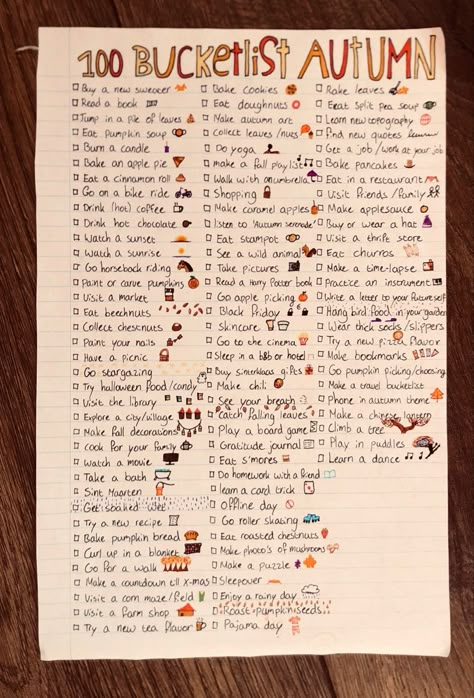 100 BUCKETLIST AUTUMN
Buy a new sweater
Read a book
Jump in a pile of leaves
Eat pumpkin soup
Burn a candle
Bake an apple pie
Eat a cinnamon roll
Go on a bike ride
Drink (hot) coffee
Drink hot chocolate
Watch a sunset
Watch a sunrise
Go horseback riding
Paint or carve pumpkins
Visit a market
Eat beechnuts
Collect chestnuts
Paint your nails
Have a picnic
Go stargazing
Try halloween food/candy
Visit the library
Explore a city/village
Make fall decorations
Cook for your family
Watch a movie
Take a bath
Sint Maarten
Get soaked wet
Try a new recipe
Bake pumpkin bread
Curl up in a blanket
Go for a walk
Make a countdown till X-mas
Visit a corn maze/field
Visit a farm shop
Try a new tea flavor
Bake cookies
Eat doughnuts
Make autumn art
Collect leaves/nuts
Do yoga
Make a fall playlist
Walk with an umbrella
Shopping
Make caramel apples
listen to 'Autumn serenade'
Eat stampot
See a wild animal
Take pictures
Read a Harry Potter book
Go apple picking
Black Friday
Skincare
Go to the cinema
Sleep in a b&b or hotel
Buy sinterklaas gifts
Make chili
See your breath
Catch falling leaves
Play a board game
Gratitude journal
Eat s'mores
Do homework with a friend
learn a card trick
Offline day
Go roller skating
Eat roasted chestnuts
Make photo's of mushrooms
Make a puzzle
Sleepover
Enjoy a rainy day
Roast pumpkinseeds
Pajama day
Rake leaves
Eeat split pea soup
Learn new
Find new quotes
Get a job/work at your job
Bake pancakes
Eat in a restaurant
Visit friends/family
Make applesauce
Buy or wear a hat
Visit a thrift store
Eat churros
Make a time-lapse
Practice an instrument
Write a letter to your future self
Hang bird food in your garden
Wear thick socks/slippers
Try a new pizza flavor
Make bookmarks
Go pumpkin picking/choosing
Make a travel bucketlist
Phone in autumn theme
Make a chinese lantern
Climb a tree
Play in puddles
Learn a dance